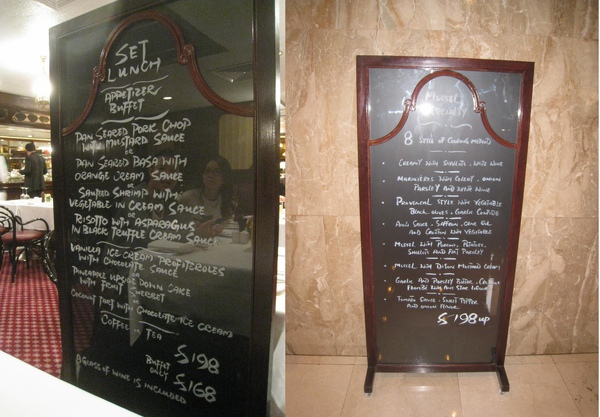 SET
LUNCH
APPETIZER
BUFFET
PAN SEARED PORK CHOP
WITH MUSTARD SAUCE
OR
PAN SEARED BASA WITH
ORANGE CREAM SAUCE
OR
SAUTEED SHRIMP WITH
VEGETABLE IN CREAM SAUCE
OR
RISOTTO WITH ASPARAGUS
IN BLACK TRUFFLE CREAM SAUCE
VANILLA ICE CREAM PROFITEROLES
WITH CHOCOLATE SAUCE
OR
PINEAPPLE UPSIDE DOWN CAKE
WITH FRUIT SHERBET
OR
COCONUT TART WITH CHOCOLATE ICE CREAM
COFFEE OR TEA
$198
BUFFET
ONLY $168
A GLASS OF WINE IS INCLUDED
MUSSEL
SPECIALTY
8 STYLE OF COOKING METHODS
CREAMY WITH SHALLOTS, WHITE WINE
MARINIERES WITH CELERY, ONION
PARSLEY AND WHITE WINE
PROVENCAL STYLE WITH VEGETABLE
BLACK OLIVES, GARLIC
SAUCE, SAFFRON, OLIVE OIL
AND WITH VEGETABLE
MUSSEL WITH POTATOES,
SHALLOTS AND
MUSSEL WITH DIJON MUSTARD CREAM
GARLIC AND PARSLEY BUTTER,
WITH
TOMATO SAUCE, SWEET PEPPER
AND
$198 up